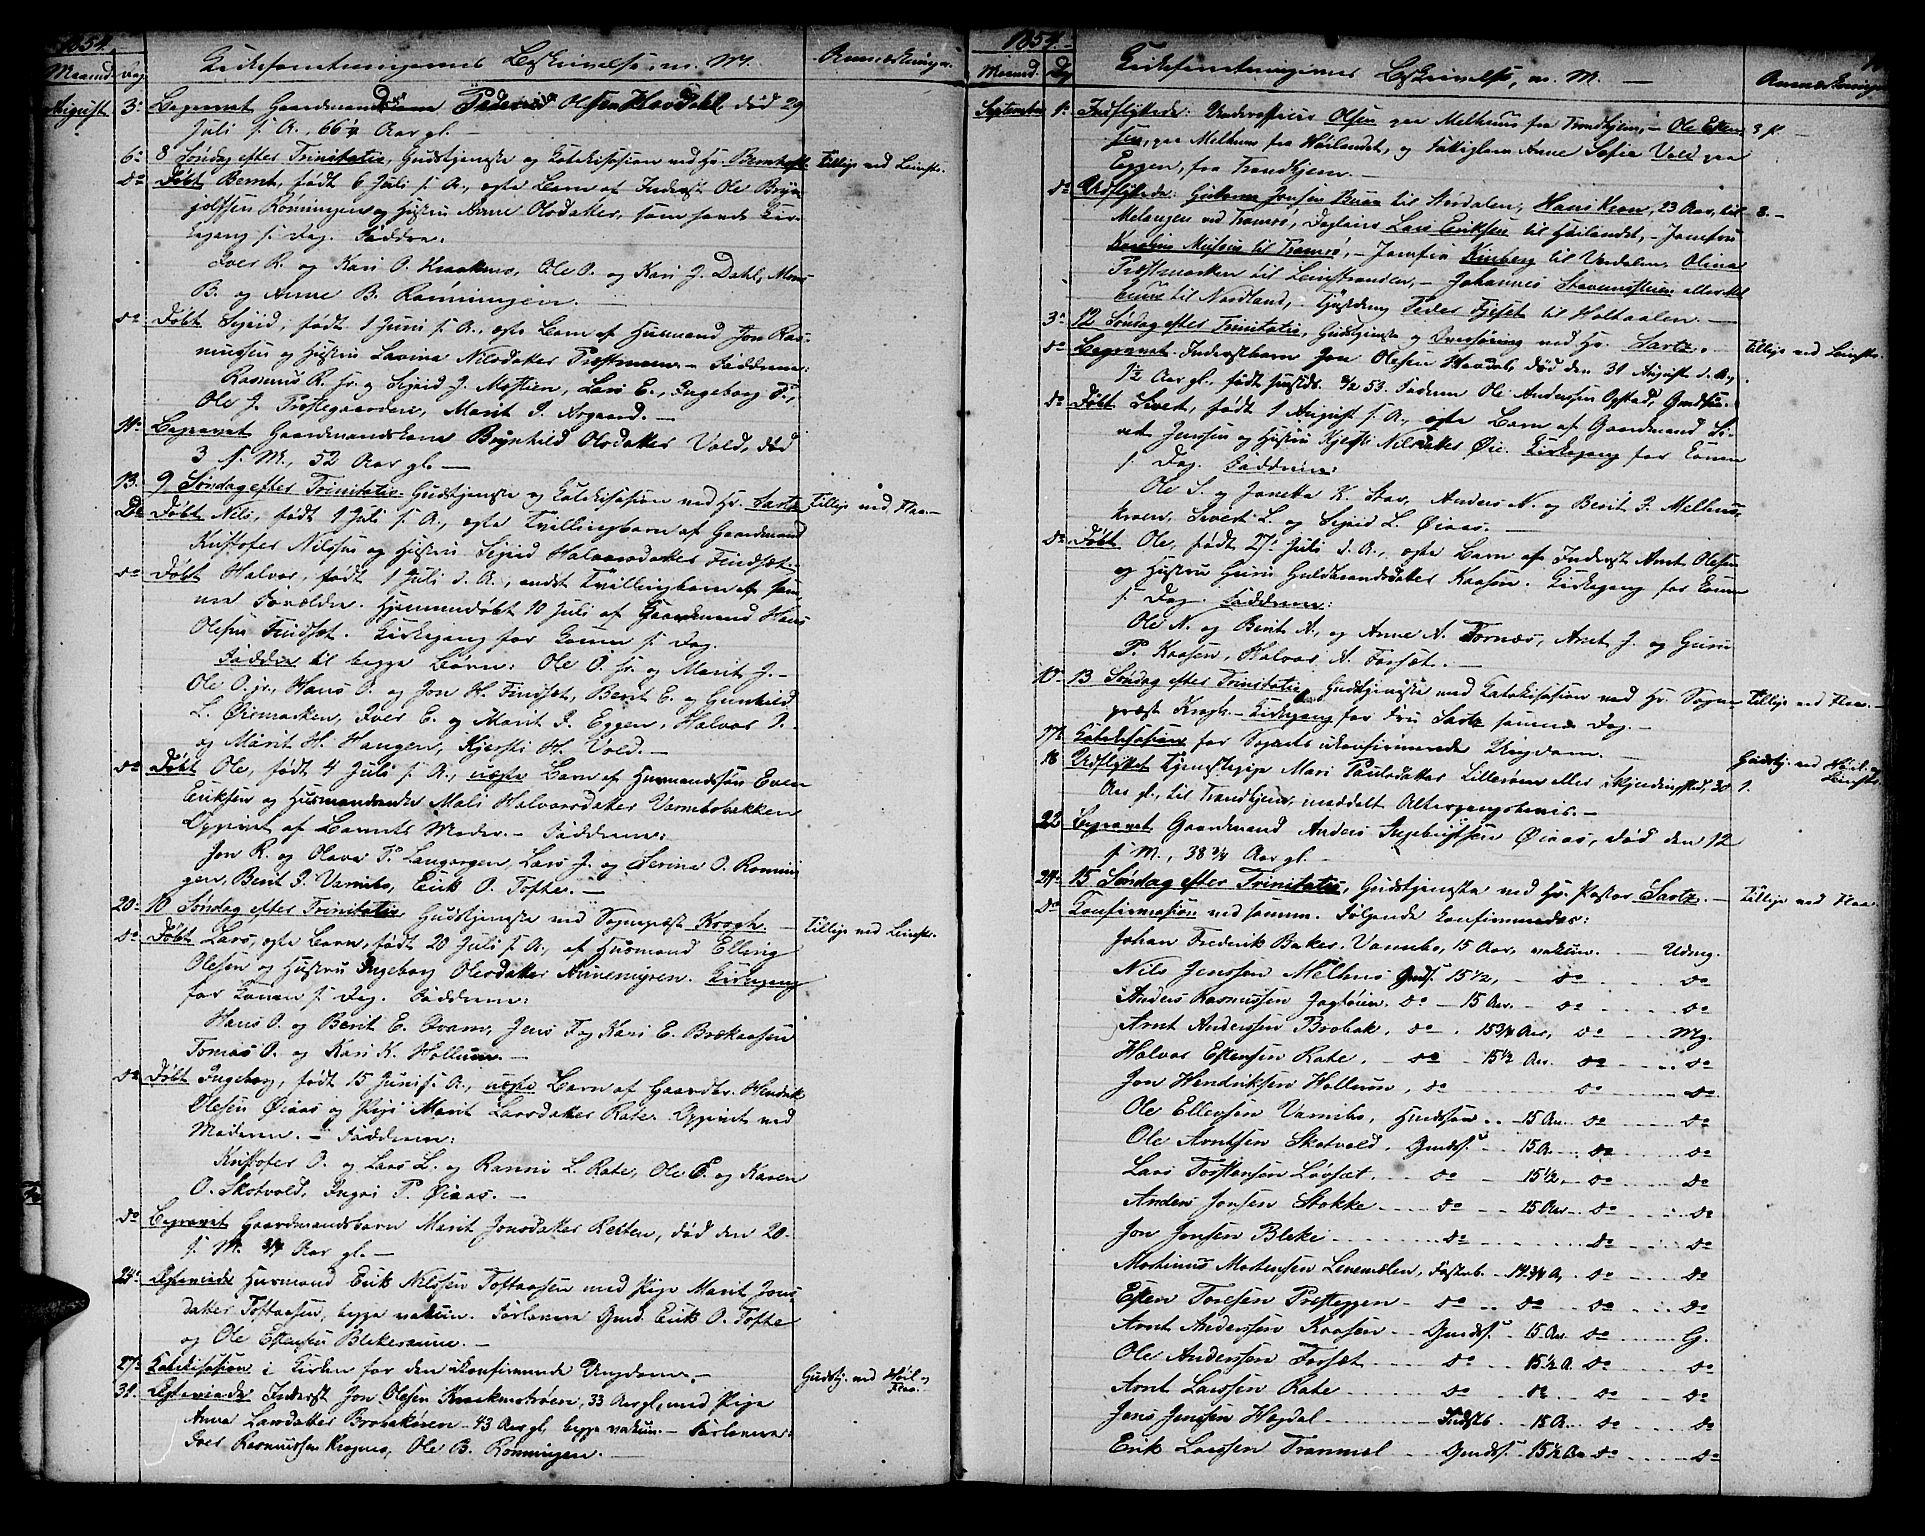 1854.
Maaned. Dag. Kirkeforretningernes Beskrivelse, m. M. Anmærkninger.
August 3. Begravet Gaardmand Peder Olsen Havdahl død 29
Juli s. A., 66 1/4 Aar gl. —
6. 8 Søndag efter Trinitatis, Gudstjeneste og Katekisation ved Hr. Bernhoft. Tillige ved Leinstr.
do Døbt Bernt, født 6 Juli s. A., ægte Barn af Inderst Ole Bryn-
jolfsen Rønningen og Hustru Anne Olsdatter, som havde Kir-
kegang s. Dag. Faddre:
Iver R. og Kari O. Kraakmo, Ole O. og Kari J. Dahl, Mons
B. og Anne B. Rønningen.
do Døbt Sigrid, født 1 Juni s. A., ægte Barn af Husmand Jon Ras-
mussen og Hustru Lavina Nilsdatter Prestmoen. — Faddrene:
Rasmus R. Hr. og Sigrid J. Mostien, Lars E., Ingeborg P.,
Ole J. Prestegaarden, Marit J. Aagaard. —
11. Begravet Gaardmandskone Brynhild Olsdatter Vold, død
3 s. M., 52 Aar gl. —
13. 9 Søndag efter Trinitatis. Gudstjeneste og Katekisation ved Hr. Sartz. Tillige ved Flaa. —
Do Døbt Nils, født 1 Juli s. A., ægte Tvillingbarn af Gaardmand
Kristofer Nilssen og Hustru Sigrid Halvorsdatter Findset. —
do Døbt Halvor, født 1 Juli d. A., andet Tvillingbarn af sam-
me Forældre. Hjemmedøbt 10 Juli af Gaardmand Hans
Olesen Findset. Kirkegang for Konen s. Dag.
Faddre til begge Børn: Ole O. sr. og Marit J. —
Ole O. jr., Hans O. og Jon H. Findset, Berit E. og Gunhild
L. Øiemarken, Iver E. og Marit J. Eggen, Halvor I.
og Marit H. Haugen, Kjersti H. Vold. —
do Døbt Ole, født 4 Juli s. A., uægte Barn af Husmandssøn Even
Eriksen og Husmandsenke Mali Halvorsdatter Varmbobakken
Opgivet af Barnets Moder. — Faddrene:
Jon R. og Olava P. Langørgen, Lars J. og Serina O. Rønnin-
gen, Berit J. Varmbo, Erik O. Tofte. —
20. 10 Søndag efter Trinitatis Gudstjeneste ved Sognepræst Krogh. — Tillige ved Leinstr.
do Døbt Lars, ægte Barn, født 20 Juli s. A., af Husmand Elling
Olesen og Hustru Ingeborg Olesdatter Annemyren. Kirkegang
for Konen s. Dag. Faddrene:
Hans O. og Berit E. Kvam, Jens T. og Kari E. Brekaasen
Tomas O. og Kari K. Hollum. —
do Døbt Ingeborg, født 15 Juni s. A., uægte Barn af Gaardbr. Hendrik
Olesen Øiaas og Pige Marit Larsdatter Rate. Opgivet ved
Moderen. — Faddrene:
Kristofer O. og Lars L. og Ranni L. Rate, Ole E. og Karen
O. Skotvold, Ingri P. Øiaas. —
do Begravet Gaardmandsbarn Marit Jonsdatter Resten, død den 20.
s. M. 3/4 Aar gl. —
24. Egteviede Husmand Erik Nilssen Toftaasen med Pige Marit Jons-
datter Toftaasen, begge vakcin. Forlovere Gmd. Erik O. Tofte
og Ole Estensen Blekesaune. —
27. Katekisation i Kirken for den ukonfirmerede Ungdom. — Gudstj. ved Høil. og Flaa.
31. Egteviede Inderst Jon Olesen Kraakmotrøen, 33 Aar gl., med Pige
Anne Larsdatter Brobakøien 43 Aar gl, begge vakcin. — Forlovere:
Iver Rasmussen Krogmo, Ole B. Rønningen. —
1854.
Maaned. Dag Kirkeforretningernes Beskrivelse, m. M. — Anmærkninger
September 1. Indflyttede: Underofficer Olsen paa Melhuus fra Trondhjem, — Ole Esten- 3 p. —
sen, paa Melhuus fra Høilandet, og Fattiglem Anne Sofie Vold paa
Eggen, fra Trondhjem. —
do Udflyttede: Guttorm Jonsen Buaas til Størdalen, Hans Kron, 23 Aar, til 8. —
Melangen ved Tromsø, Daglønr. Lars Eriksen til Høilandet, — Jomfru
Karoline Nissen til Tromsø, — Jomfru Kinberg til Værdalen, Olina
Prestmarken til Leinstranden, — Johannes Stavensteien eller
til Nordland, — Gjøsdreng Peder Fjeset til Holtaalen. —
3. 12 Søndag efter Trinitatis, Gudstjeneste og Overhøring ved Hr. Sartz. Tillige ved Leinstr.
do Begravet. Inderstbarn Jon Olesen Havdal, død den 31 August d. A.,
1 1/2 Aar gl., født 3/2 53. Faderen Ole Anderssen Øgstad,
do Døbt Sivert, født 1 August s. A., ægte Barn af Gaardmand Si-
vert Jenssen og Hustru Kjersti Nilsdatter Øie. Kirkegang for Konen
s. Dag. Faddrene:
Ole S. og Janetta K. Stav, Anders N. og Berit J. Melhus-
kroen, Sivert L. og Sigrid L. Øiaas. —
do Døbt Ole, født 27 Juli d. A., ægte Barn af Inderst Arnt Olesen
og Hustru Guru Guldbrandsdatter Kaasen. Kirkegang for Konen
s. Dag. Faddrene:
Ole N. og Berit A., og Anne A. Fornæs, Arnt J. og Guru
P. Kaasen, Halvor A. Forset. —
10. 13 Søndag efter Trinitatis, Gudstjeneste med Katekisation ved Hr. Sogne- Tillige ved Flaa. —
præst Krogh. — Kirkegang for Fru Sartz samme Dag. —
17. Katekisation for Sognets ukonfirmerede Ungdom. Gudstj. ved Høil. og Leinstr.
18 Udflyttet Tjenestepige Mari Paulsdatter Lillerøen eller Skjerdingstad, 30 1.
Aar gl., til Trondhjem, meddelt Altergangsbevis. —
22 Begravet Gaardmand Anders Ingebrigtsen Øiaas, død den 12
s. M., 38 3/4 Aar gl. —
24. 15 Søndag efter Trinitatis, Gudstjeneste ved Hr. Pastor Sartz. — Tillige ved Flaa. —
do Konfirmation ved samme. Følgende konfirmeredes:
Johan Frederik Baker Varmbo, 15 Aar, vakcin. — Udmg.
Nils Jenssen Melhus Gmds. 15 1/2, — do do
Anders Rasmussen Jagtøien. do — 15 Aar. — do do
Arnt Anderssen Brobak, do . 15 3/4 Aar, do Mg.
Halvor Estensen Rate. do 15 1/2 Aar do do
Jon Hendriksen Hollum, do do do
Ole Ellevsen Varmbo, Husmdssøn . 15 Aar do do
Ole Arntsen Skotvold, Gmdss. 15 A. do do
Lars Torstensen Løvset. do 15 1/2, do do
Anders Jonsen Stokke do 15 Aar do do
Jon Jonsen Bleke do do do
Martinus Mortensen Lenemelen, Fosterb. 14 3/4 A, do do
Esten Toresen Presteggen do do do do
Arnt Anderssen Kaasen Gmdss. 15 Aar do G.
Ole Anderssen Forset do 15 1/2 A. do do
Arnt Larssen Rate do do do do
Jens Jenssen Hagdal Indstb. 18 A. do do
Erik Larssen Tranmæl Gmdss. 15 1/2 Aar do do